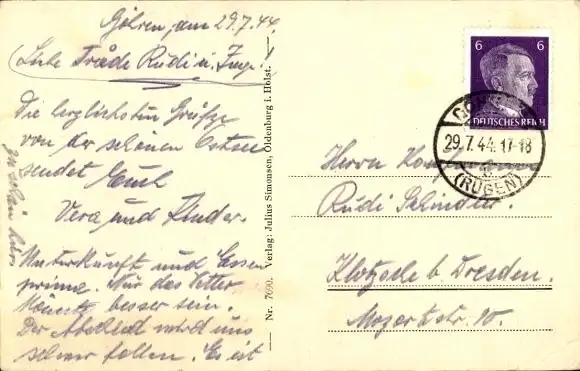 Göhren, am 29.7.44.
Liebe Tråde Rudi u. Inge!
Die herzlichsten Grüße
von der schönen Ostsee
sendet Euch
Vera und Kinder.
Unterkunft und Essen
prima. Nur das Wetter
könnte besser sein.
Der Abschied wird uns
schwer fallen. Es ist
zu schön hier
Nr. 7690. Verlag: Julius Simonsen, Oldenburg i. Holst.
6 6
DEUTSCHES REICH
29.7.44.17-18
(RÜGEN)
Herrn
Rudi Schindler.
Klotzsche b. Dresden.
Mozartstr. 10.